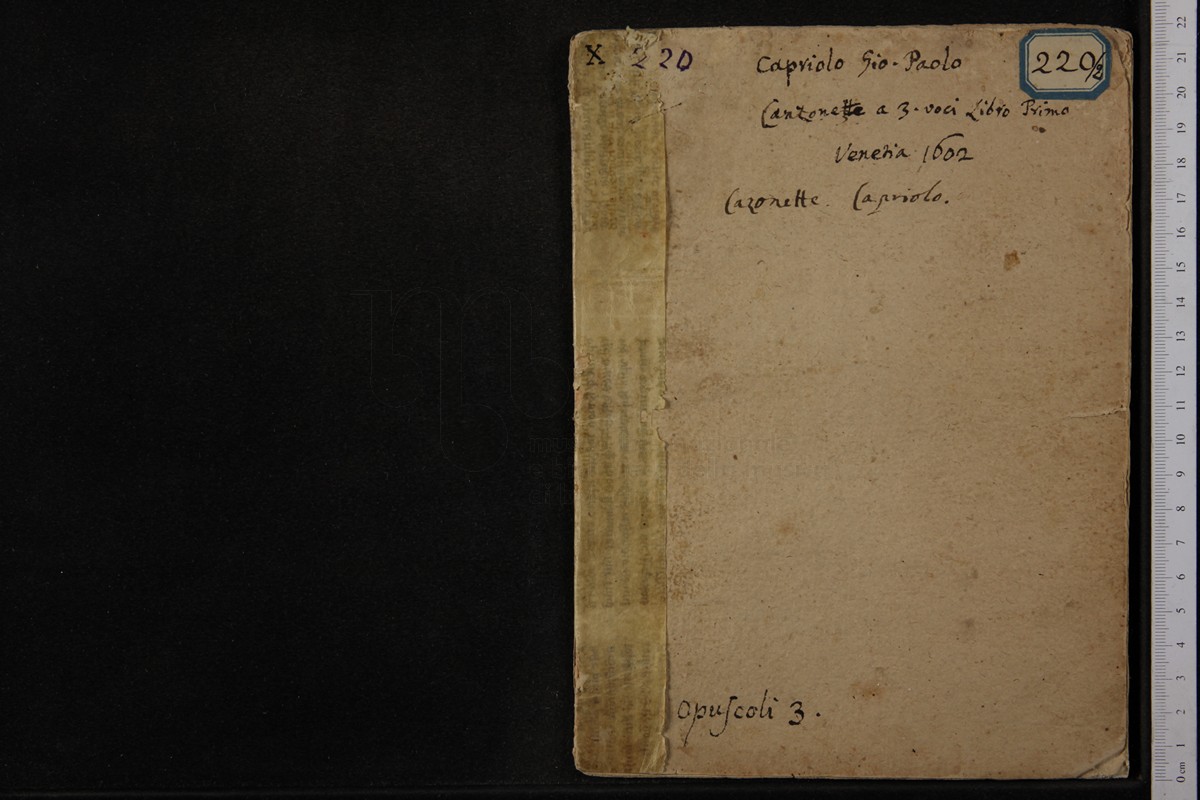 X 220
220/2
Capriolo Gio. Paolo
Canzonette a 3. voci Libro Primo
Venetia 1602
Cazonette. Capriolo.
Opuſcoli 3.
22
21
20
19
18
17
16
15
14
13
12
11
10
9
8
7
6
5
4
3
2
1
0 cm